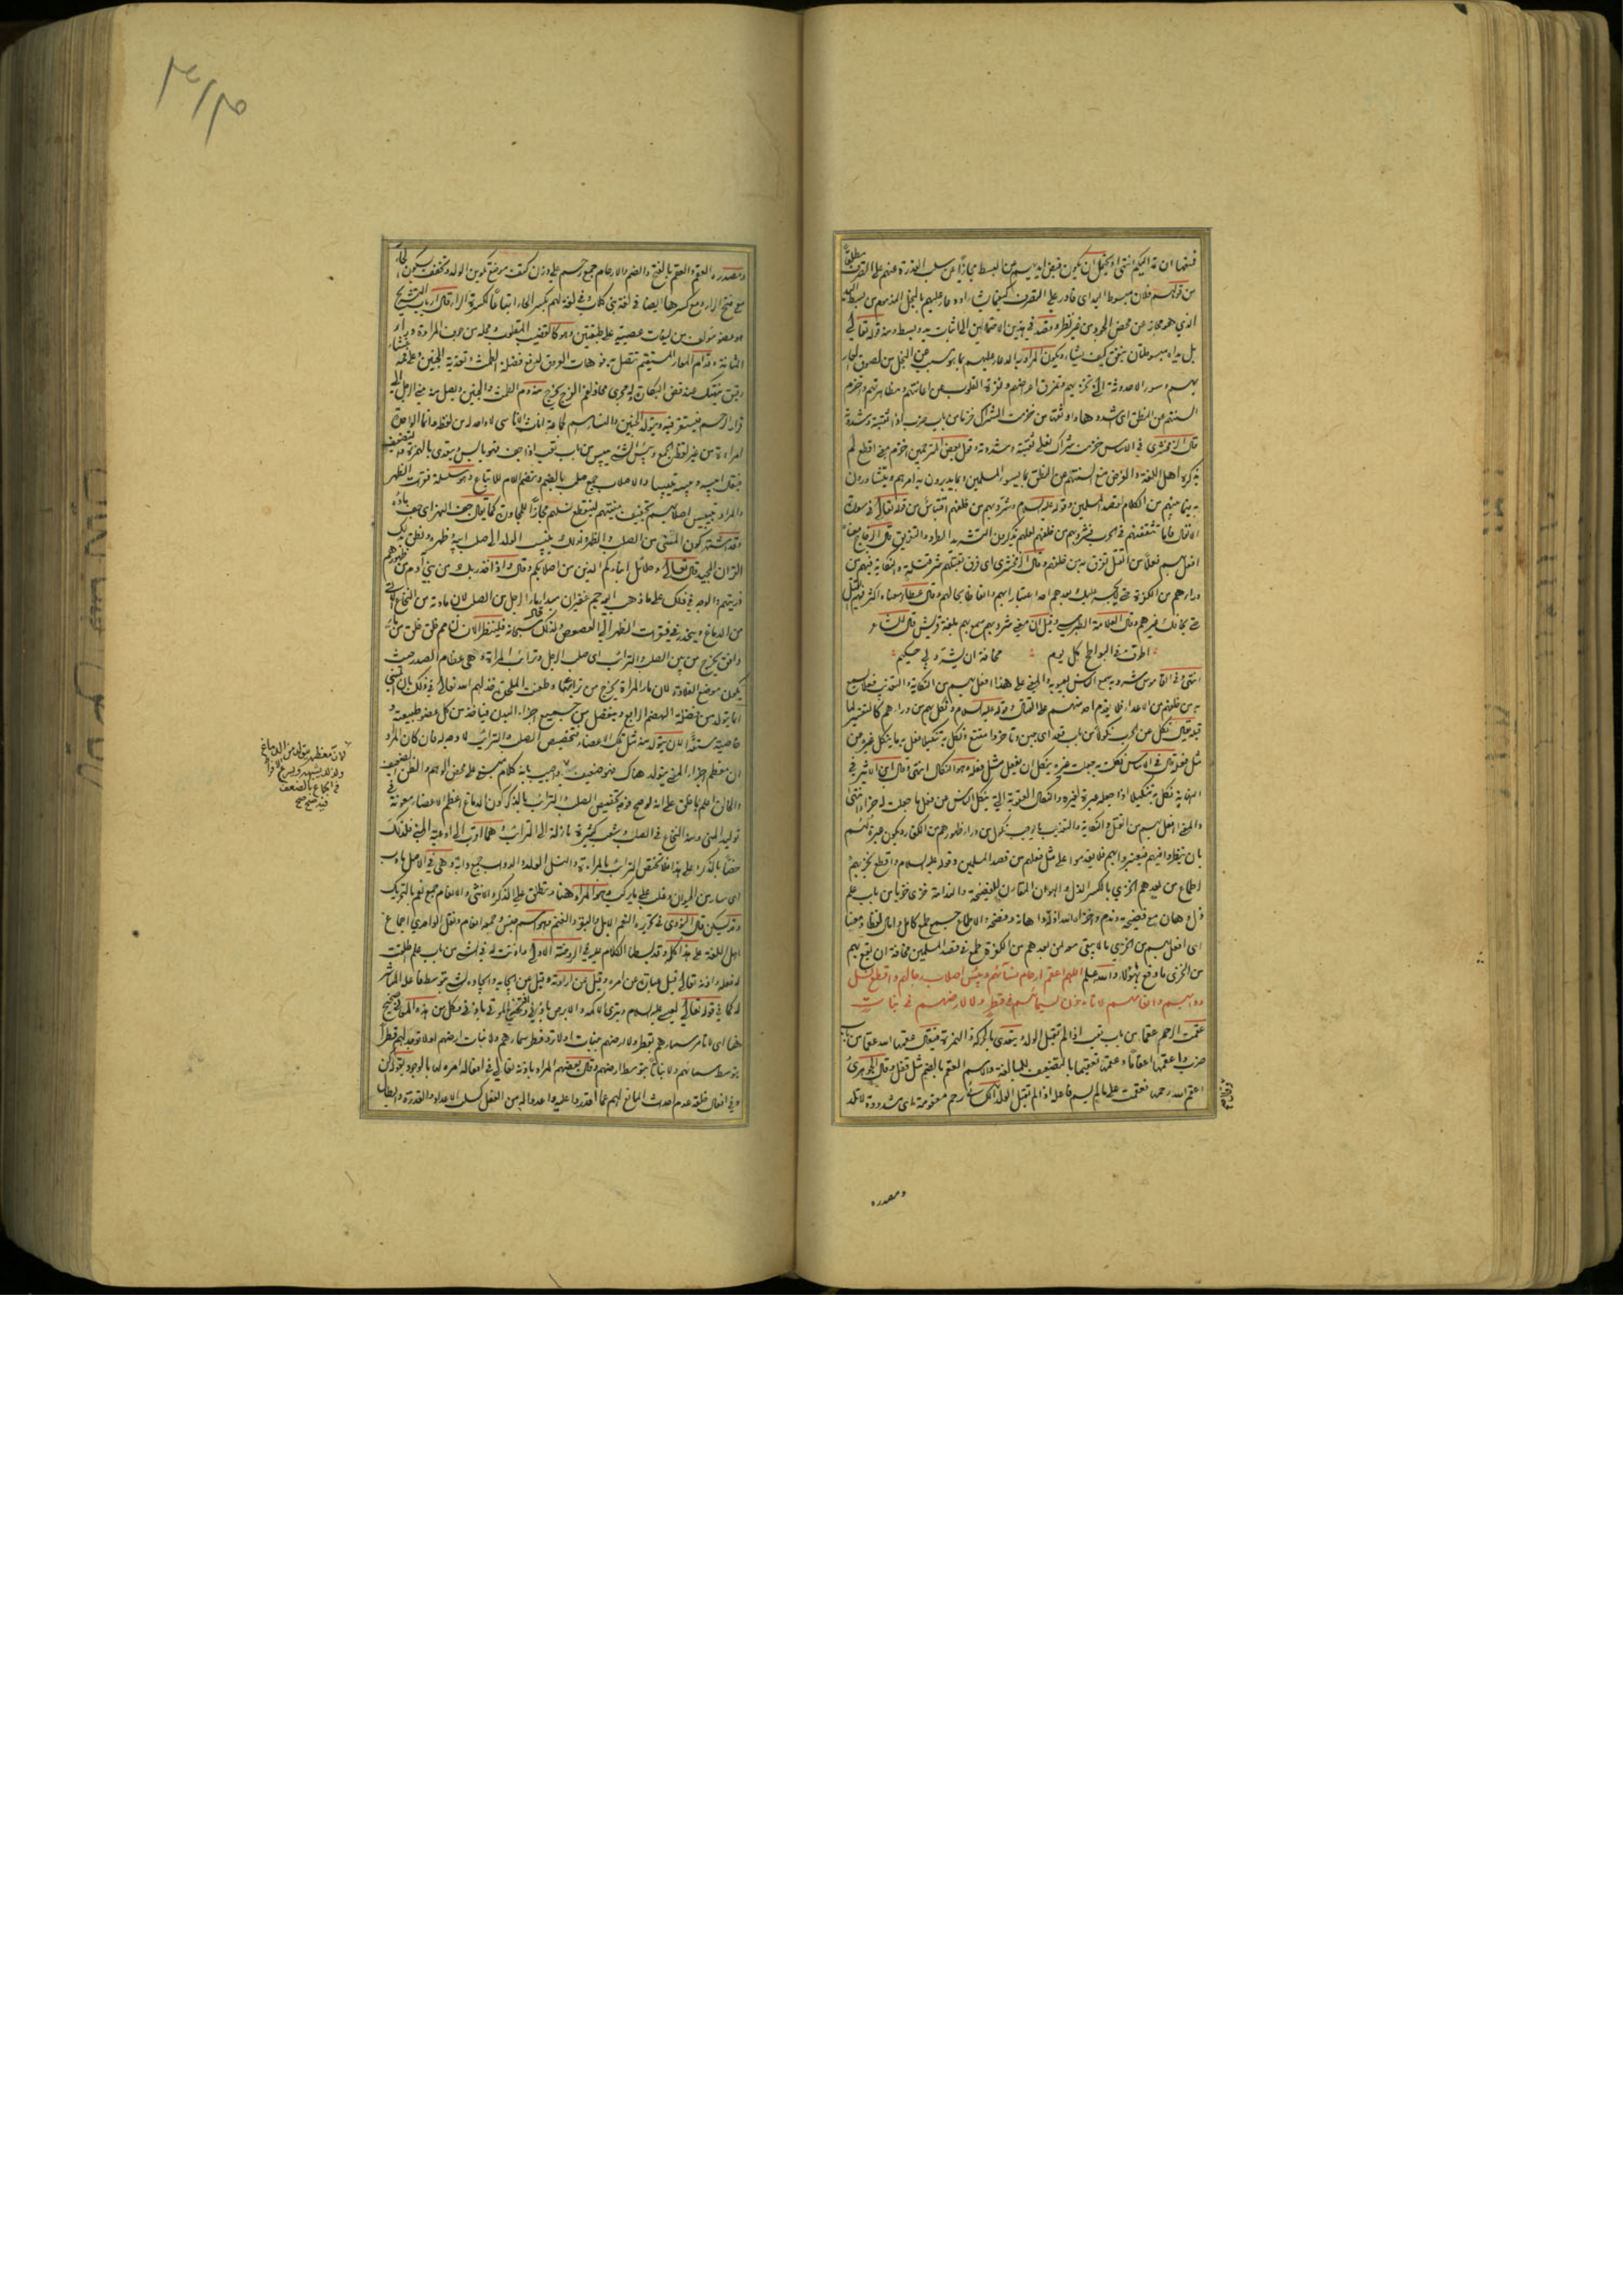 فيها ان تمد اليكم انتهى ويحتمل ان يكون قبض ايديهم من البسط مجازا عن سلب القدرة عنهم على التصرف مطلقا
من قولهم فلان مبسوط اليد اى قادر على التصرف كيفما شاء او دعاء عليهم بالبخل المذموم من بسط اليد
الذي هو مجاز عن محض الجود من غير نظر وقصد في هذين الاحتمالين الى اثبات يد وبسط ومنه قوله تعالى
بل يداه مبسوطتان ينفق كيف يشاء ويكون المراد بالدعاء عليهم بما يوجب عن البخل من لصوق العار
بهم وسوء الاحدوثة التي تخزيهم وتمزق اعراضهم ونفرة القلوب عن اعانتهم ومظاهرتهم واخزم
السنتهم عن النطق اى شدوها واوثقها من خزمت الشراك خزما من باب ضرب اذا ثقبته وشددته
قال الزمخشرى في الاساس خزمت شراك نعلي ثقبته وشددته وقول بعض المترجمين اخزم بمعنى اقطع لم
يذكره اهل اللغة والغرض منع السنتهم عن النطق بما يسوء المسلمين وبما يدبرون به امرهم ويتشاورون
به بينهم من الكلام لقصد المسلمين وقوله عليه السلام وشرد بهم من خلفهم اقتباس من قوله تعالى في سورة
الانفال فاما تثقفنهم في الحرب فشرد بهم من خلفهم لعلهم يذكرون التشريد الطرد والتفريق قال الزجاج معناه
افعل بهم فعلا من القتل تفرق به من خلفهم وقال الزمخشرى اى فرق بقتلهم شر قتلة والنكاية فيهم من
وراءهم من الكفرة حتى لا يجسر عليك بعدهم احد اعتبارا بهم واتعاظا بحالهم وقال عطاء معناه اكثر فيهم القتل
حتى يخافك غيرهم وقال العلامة الطبرسى وقيل ان معنى شرد بهم سمع بهم بلغة قريش قال الشاعر
اطوف في البواطح كل يوم مخافة ان يشرد بي حكيم
انتهى وفي القاموس شرد به سمع الناس بعيوبه والمعنى على هذا افعل بهم من النكاية والتعذيب فعلا يسمع
به من خلفهم من الاعداء فلا يقدم احد منهم على القتال وقوله عليه السلام ونكل بهم من وراءهم كالتفسير لما
قبله يقال نكل عن الحرب نكولا من باب قعد اى جبن وتاخر وامتنع ونكل به تنكيلا فعل به ما ينكل غيره عن
مثل فعله قال في الاساس نكلت به جعلت غيره ينكل ان يفعل مثل فعله وهو النكال انتهى وقال ابن الاثير في
النهاية نكل به تنكيلا اذا جعله عبرة لغيره والنكال العقوبة التي تنكل الناس عن فعل ما جعلت له جزاء انتهى
والمعنى افعل بهم من القتل والنكاية والتعذيب ما يوجب نكول من وراء ظهورهم من الكفار ويكون عبرة لهم
بان ينظروا فيهم فيعتبروا بهم فلا يقدموا على مثل فعلهم من قصد المسلمين وقوله عليه السلام واقطع بخزيهم
اطماع من بعدهم الخزي بالكسر الذل والهوان المقارن للفضيحة والندامة خزي خزيا من باب علم
ذل وهان مع فضيحة وندم واخزاه الله اذله واهانه وفضحه والاطماع جمع طمع كامل وامال لفظا ومعنا
اى افعل بهم من الخزي ما لا يبقى معه لمن بعدهم من الكفرة طمع في قصد المسلمين مخافة ان يقع بهم
من الخزى ما وقع بهؤلاء والله اعلم اللهم اعقم ارحام نسائهم ويبس اصلاب رجالهم واقطع نسل
دوابهم وانعامهم لا تاذن لسمائهم في قطر ولا لارضهم في نبات
عقمت الرحم عقما من باب تعب اذا لم تقبل الولد ويتعدى بالحركة والهمزة فيقال عقمها الله عقما من باب
ضرب واعقمها اعقاما وعقمتها تعقيما بالتضعيف للمبالغة والاسم العقم بالضم مثل قفل وقال الجوهرى
اعقم الله رحمها فعقمت على ما لم يسم فاعله اذا لم تقبل الولد الكسائي رحم معقومة اى مشدودة لا تلد
ومصدره
ومصدره العقم والعقم بالفتح والضم والارحام جمع رحم على وزن كتف موضع تكوين الولد وتخفف بسكون الحاء
مع فتح الراء ومع كسرها ايضا في لغة بني كلاب وفي لغة لهم بكسر الحاء اتباعا لكسرة الراء قال ارباب التشريح
هو عضو مؤلف من ليفات عصبية على طبقتين وهو كالقضيب المقلوب ومحله من جوف المراة وراء
المثانة وقدام المعاء المستقيم تتصل به فوهات العروق لدفع فضلة الطمث وتغذية الجنين وعلى فمه غشاء
رقيق ينتهك عند فض البكارة وله مجرى محاذ لفم الفرج يخرج منه دم الطمث والجنين ويصل منه مني الرجل الى
قرار الرحم فيستقر فيه ويتولد الجنين والنساء اسم لجماعة اناث الاناسى لا واحد له من لفظه وانما الواحدة
امراة من غير لفظ الجمع ويبس الشئ ييبس من باب تعب اذا جف فهو يابس ويتعدى بالهمزة والتضعيف
فيقال ايبسه ويبسه تيبيسا والاصلاب جمع صلب بالضم وتضم اللام للاتباع وهو سلسلة فقرات الظهر
والمراد بتيبيس اصلابهم تجفيف منيتهم لينقطع نسلهم مجازا للمجاورة كما يقال جف النهر اى جف ماؤه
وقد اشتهر كون المني من الصلب والظهر ولذلك ينسب الولد الى صلب ابيه وظهره ونطق بذلك
القران المجيد قال تعالى وحلائل ابنائكم الذين من اصلابكم وقال واذ اخذ ربك من بني ادم من ظهورهم
ذريتهم والوجه في ذلك على ما ذهب اليه جم غفير ان مبدا ماء الرجل من الصلب لان مادته من النخاع الاتي
من الدماغ وينحدر في فقرات الظهر الى العصعص ولذلك قال سبحانه فلينظر الانسان مم خلق خلق من ماء
دافق يخرج من بين الصلب والترائب اى صلب الرجل وترائب المراة وهي عظام الصدر حيث
يكون موضع القلادة لان ماء المراة يخرج من ترائبها وطعنت الملحدة خذلهم الله تعالى في ذلك بان المني
انما يتولد من فضلة الهضم الرابع وينفصل من جميع اجزاء البدن فياخذ من كل عضو طبيعته و
خاصيته مستعدا لان يتولد منه مثل تلك الاعضاء فتخصيص الصلب والترائب لا وجه له فان كان المراد
ان معظم اجزاء المني يتولد هناك فهو ضعيف واجيب بانه كلام مبني على محض الوهم والظن الضعيف
والخالق اعلم بما خلق على انه لو صح فوجه تخصيص الصلب والترائب بالذكر كون الدماغ اعظم الاعضاء معونة في
توليد المني ومنه النخاع في الصلب وشعب كثيرة نازلة الى الترائب وهما اقرب الى اوعية المني فلذلك
خصا بالذكر وعلى هذا فلا تختص الترائب بالمراة والنسل الولد والدواب جمع دابة وهي في الاصل ما دب
اى سار من الحيوان وغلب على ما يركب وهو المراد هنا وتطلق على الذكر والانثى والانعام جمع نعم بالتحريك
وقد يسكن قال النووى في تحريره النعم الابل والبقر والغنم وهو اسم جنس وجمعه انعام ونقل الواحدي اجماع
اهل اللغة على هذا كله وقد بسطنا الكلام عليه في الروضة الاولى واذنت له في الشئ من باب علم اطلقت
له فعله واذنه تعالى قيل عبارة عن امره وقيل عن ارادته وقيل عن ايجابه وايجاده لشئ بتوسطه على المباشر
له كما في قوله تعالى لعيسى عليه السلام وتبرئ الاكمه والابرص باذني واذ تخرج الموتى باذني وكل من هذه المعاني صحيح
هنا اى لا تامر سماءهم بقطر ولا ارضهم بنبات او لا ترد قطر سمائهم ولا نبات ارضهم او لا توجد لهم قطرا
بتوسط سمائهم ولا نباتا بتوسط ارضهم وقال بعضهم المراد باذنه تعالى في افعاله امره لها بالوجود بقوله كن
وفي افعال خلقه عدم احداث المانع لهم عما اقدروا عليه واعدوا له من الفعل كسلب الارادة والقدرة وابطال
لان معظمه يتولد من الدماغ
ولذلك يشبهه ويسرع الافراط
في الجماع بالضعف
فيه صح